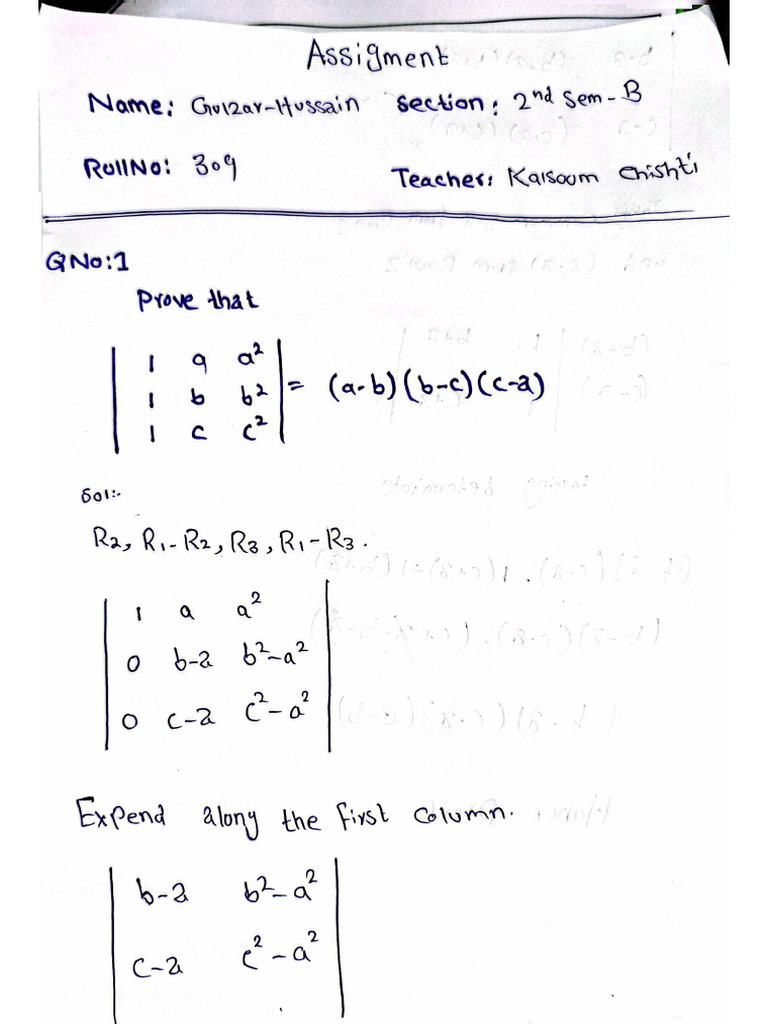 Assigment
Name: Gulzar-Hussain section: 2nd Sem-B
RollNo: 309 Teacher: Kalsoum Chishti
QNo:1
Prove that
| 1 a a² |
| 1 b b² | = (a-b)(b-c)(c-a)
| 1 c c² |
Sol:-
R2, R1-R2, R3, R1-R3.
| 1 a a² |
| 0 b-a b²-a² |
| 0 c-a c²-a² |
Expend along the first column.
| b-a b²-a² |
| c-a c²-a² |